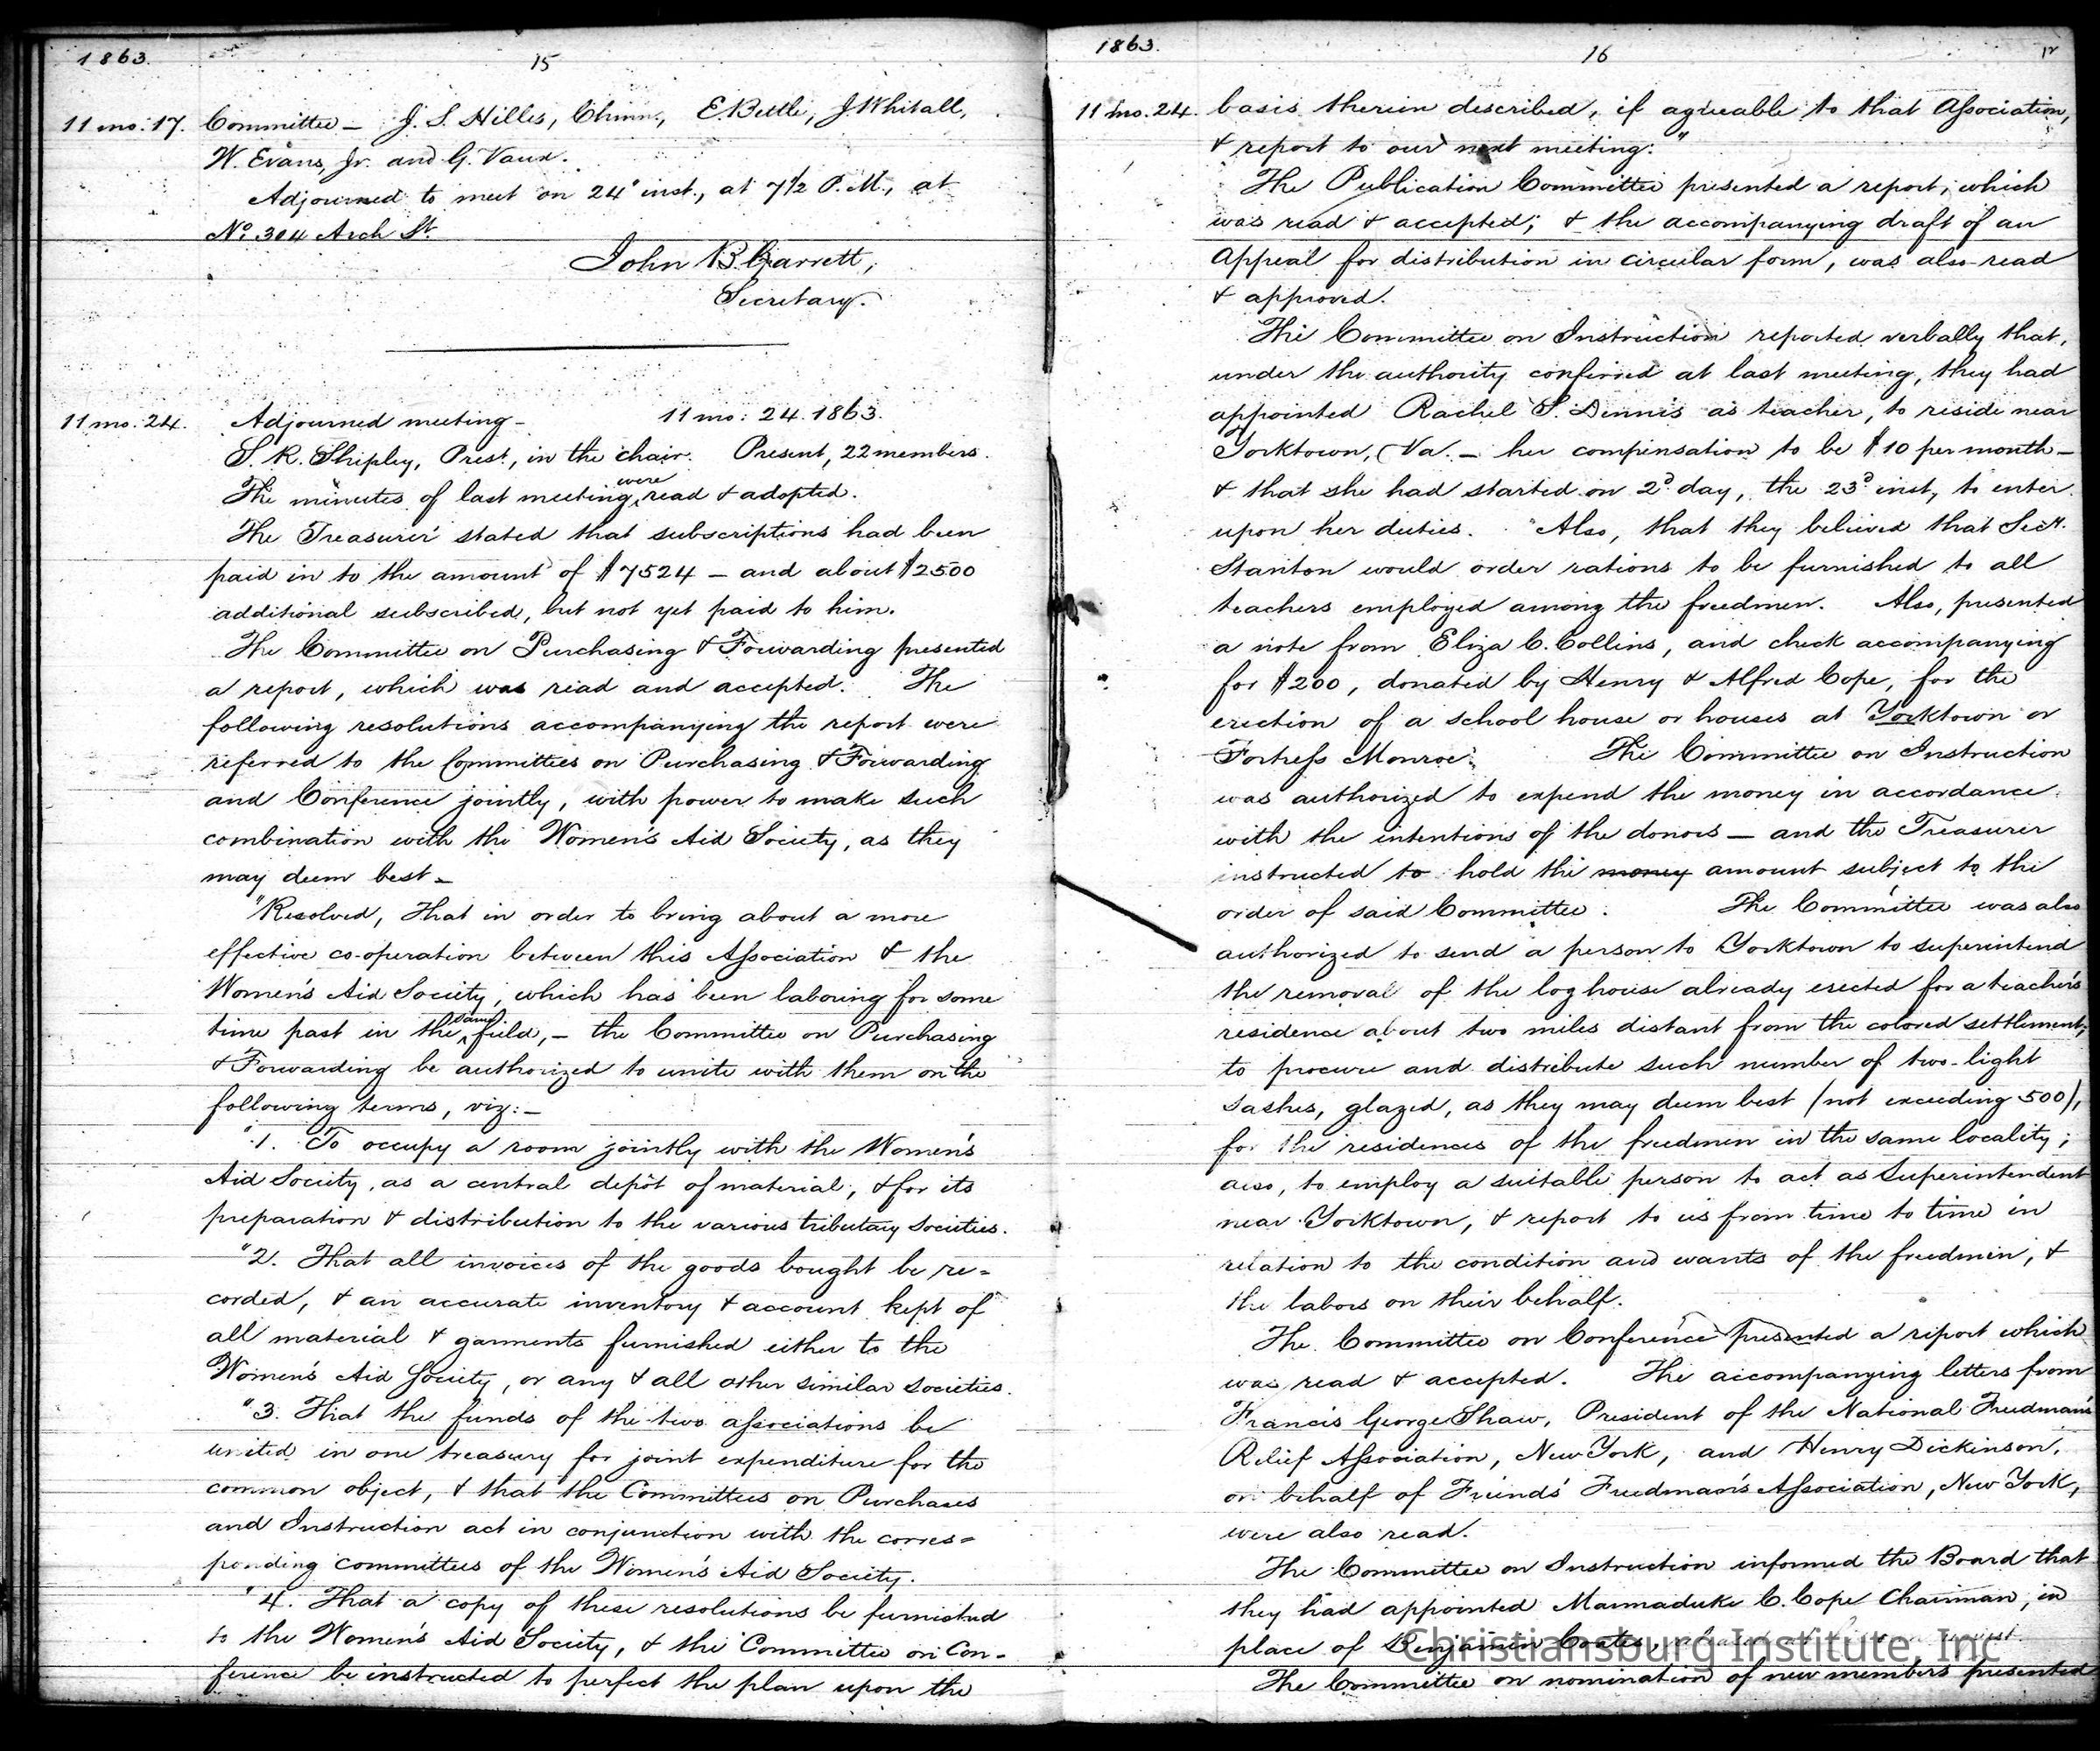 1863.
15
11 mo: 17. Committee — J. S. Hilles, Chmn., E. Bettle, J. Whitall,
W. Evans, Jr. and G. Vaux.
Adjourned to meet on 24° inst., at 7 1/2 P. M., at
No. 304 Arch St.
John B. Garrett,
Secretary.
11 mo: 24. Adjourned meeting — 11 mo: 24. 1863.
S. R. Shipley, Prest., in the chair. Present, 22 members.
The minutes of last meeting were read & adopted.
The Treasurer stated that subscriptions had been
paid in to the amount of $7524 — and about $2500
additional subscribed, but not yet paid to him.
The Committee on Purchasing & Forwarding presented
a report, which was read and accepted. The
following resolutions accompanying the report were
referred to the Committees on Purchasing & Forwarding
and Conference jointly, with power to make such
combination with the Women's Aid Society, as they
may deem best —
"Resolved, That in order to bring about a more
effective co-operation between this Association & the
Women's Aid Society, which has been laboring for some
time past in the same field, — the Committee on Purchasing
& Forwarding be authorized to unite with them on the
following terms, viz: —
"1. To occupy a room jointly with the Women's
Aid Society, as a central depôt of material, & for its
preparation & distribution to the various tributary societies.
"2. That all invoices of the goods bought be re=
corded, & an accurate inventory & account kept of
all material & garments furnished either to the
Women's Aid Society, or any & all other similar societies.
"3. That the funds of the two associations be
united in one treasury for joint expenditure for the
common object, & that the Committees on Purchases
and Instruction act in conjunction with the corres=
ponding committees of the Women's Aid Society.
"4. That a copy of these resolutions be furnished
to the Women's Aid Society, & the Committee on Con=
ference be instructed to perfect the plan upon the
1863.
16
11 mo. 24. basis therein described, if agreeable to that Association,
& report to our next meeting."
The Publication Committee presented a report, which
was read & accepted; & the accompanying draft of an
Appeal for distribution in circular form, was also read
& approved.
The Committee on Instruction reported verbally that,
under the authority conferred at last meeting, they had
appointed Rachel S. Dennis as teacher, to reside near
Yorktown, Va. — her compensation to be $10 per month —
& that she had started on 2d day, the 23d inst, to enter
upon her duties. Also, that they believed that Secy.
Stanton would order rations to be furnished to all
teachers employed among the freedmen. Also, presented
a note from Eliza C. Collins, and check accompanying
for $200, donated by Henry & Alfred Cope, for the
erection of a school house or houses at Yorktown or
Fortress Monroe. The Committee on Instruction
was authorized to expend the money in accordance
with the intentions of the donors — and the Treasurer
instructed to hold the money amount subject to the
order of said Committee. The Committee was also
authorized to send a person to Yorktown to superintend
the removal of the log house already erected for a teacher's
residence about two miles distant from the colored settlement;
to procure and distribute such number of two-light
sashes, glazed, as they may deem best (not exceeding 500),
for the residences of the freedmen in the same locality;
also, to employ a suitable person to act as Superintendent
near Yorktown, & report to us from time to time in
relation to the condition and wants of the freedmen, &
the labors on their behalf.
The Committee on Conference presented a report which
was read & accepted. The accompanying letters from
Francis George Shaw, President of the National Freedman's
Relief Association, New York, and Henry Dickinson,
on behalf of Friends' Freedman's Association, New York,
were also read.
The Committee on Instruction informed the Board that
they had appointed Marmaduke C. Cope Chairman, in
place of Benjamin Coates,
The Committee on nomination of new members presented
Christiansburg Institute, Inc